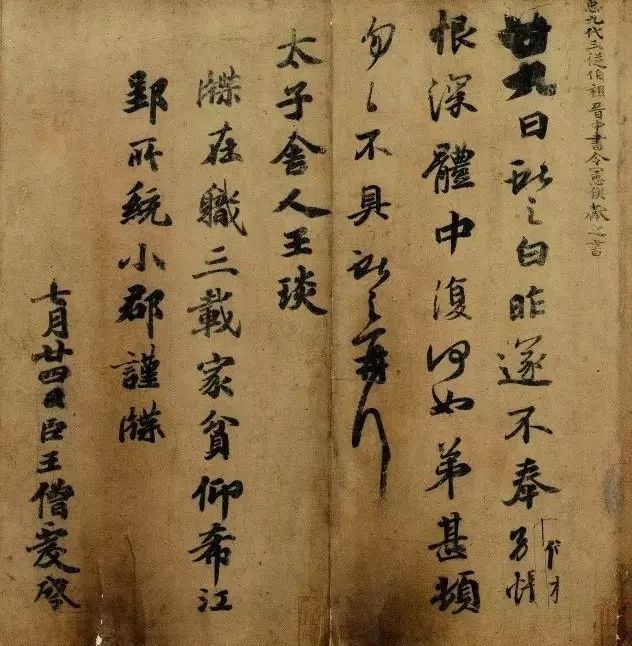 九代三從伯祖晉中書令憲侯獻之書
廿九日獻之白昨遂不奉別悵
恨深體中復何如弟甚頓
勿々不具獻之再拜
太子舍人王琰
牒在職三載家貧仰希江
郢所統小郡謹牒
七月廿四日臣王僧虔啓